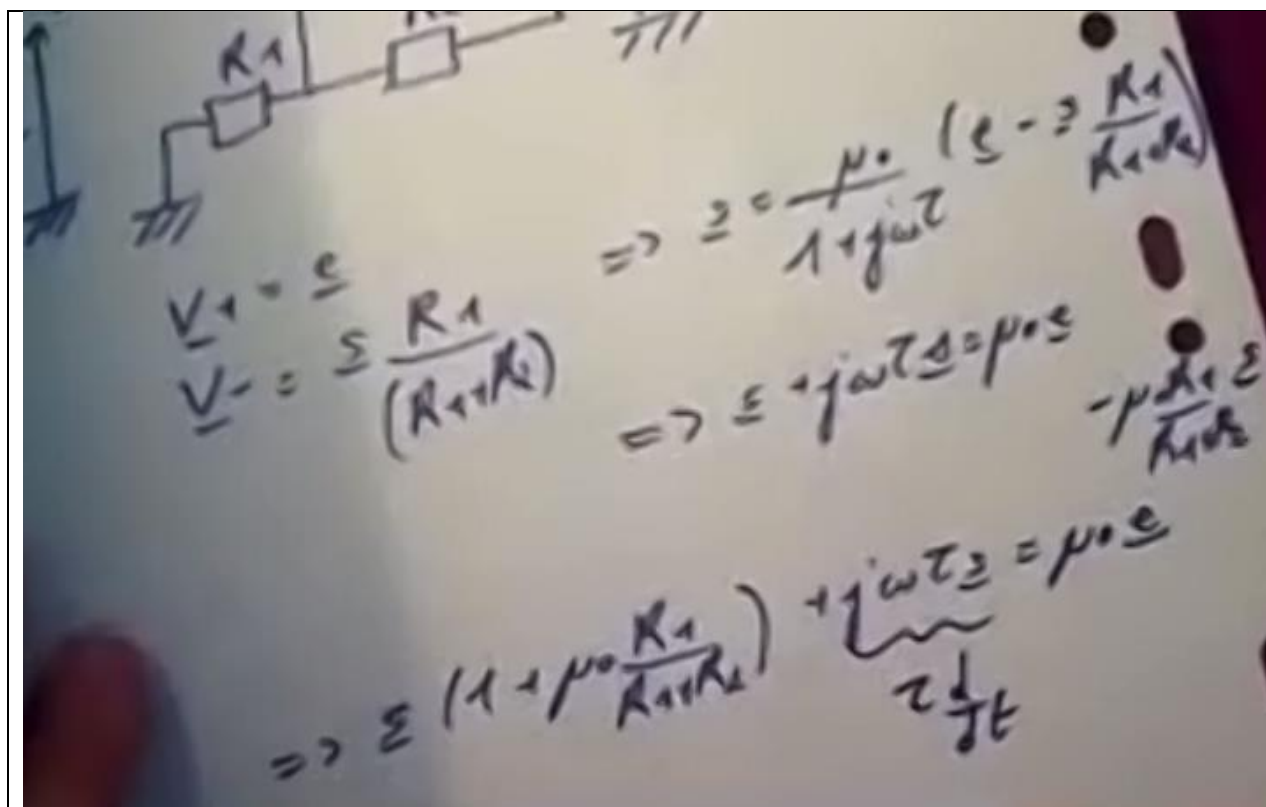 R1
V+ = e
V- = s R1/(R1+R2)
=> s = μ0/(1+jωτ) (e - s R1/(R1+R2))
=> s + jωτs = μ0e - μ R1/(R1+R2) s
=> s (1 + μ0 R1/(R1+R2)) + jωτs = μ0e
τ d/dt